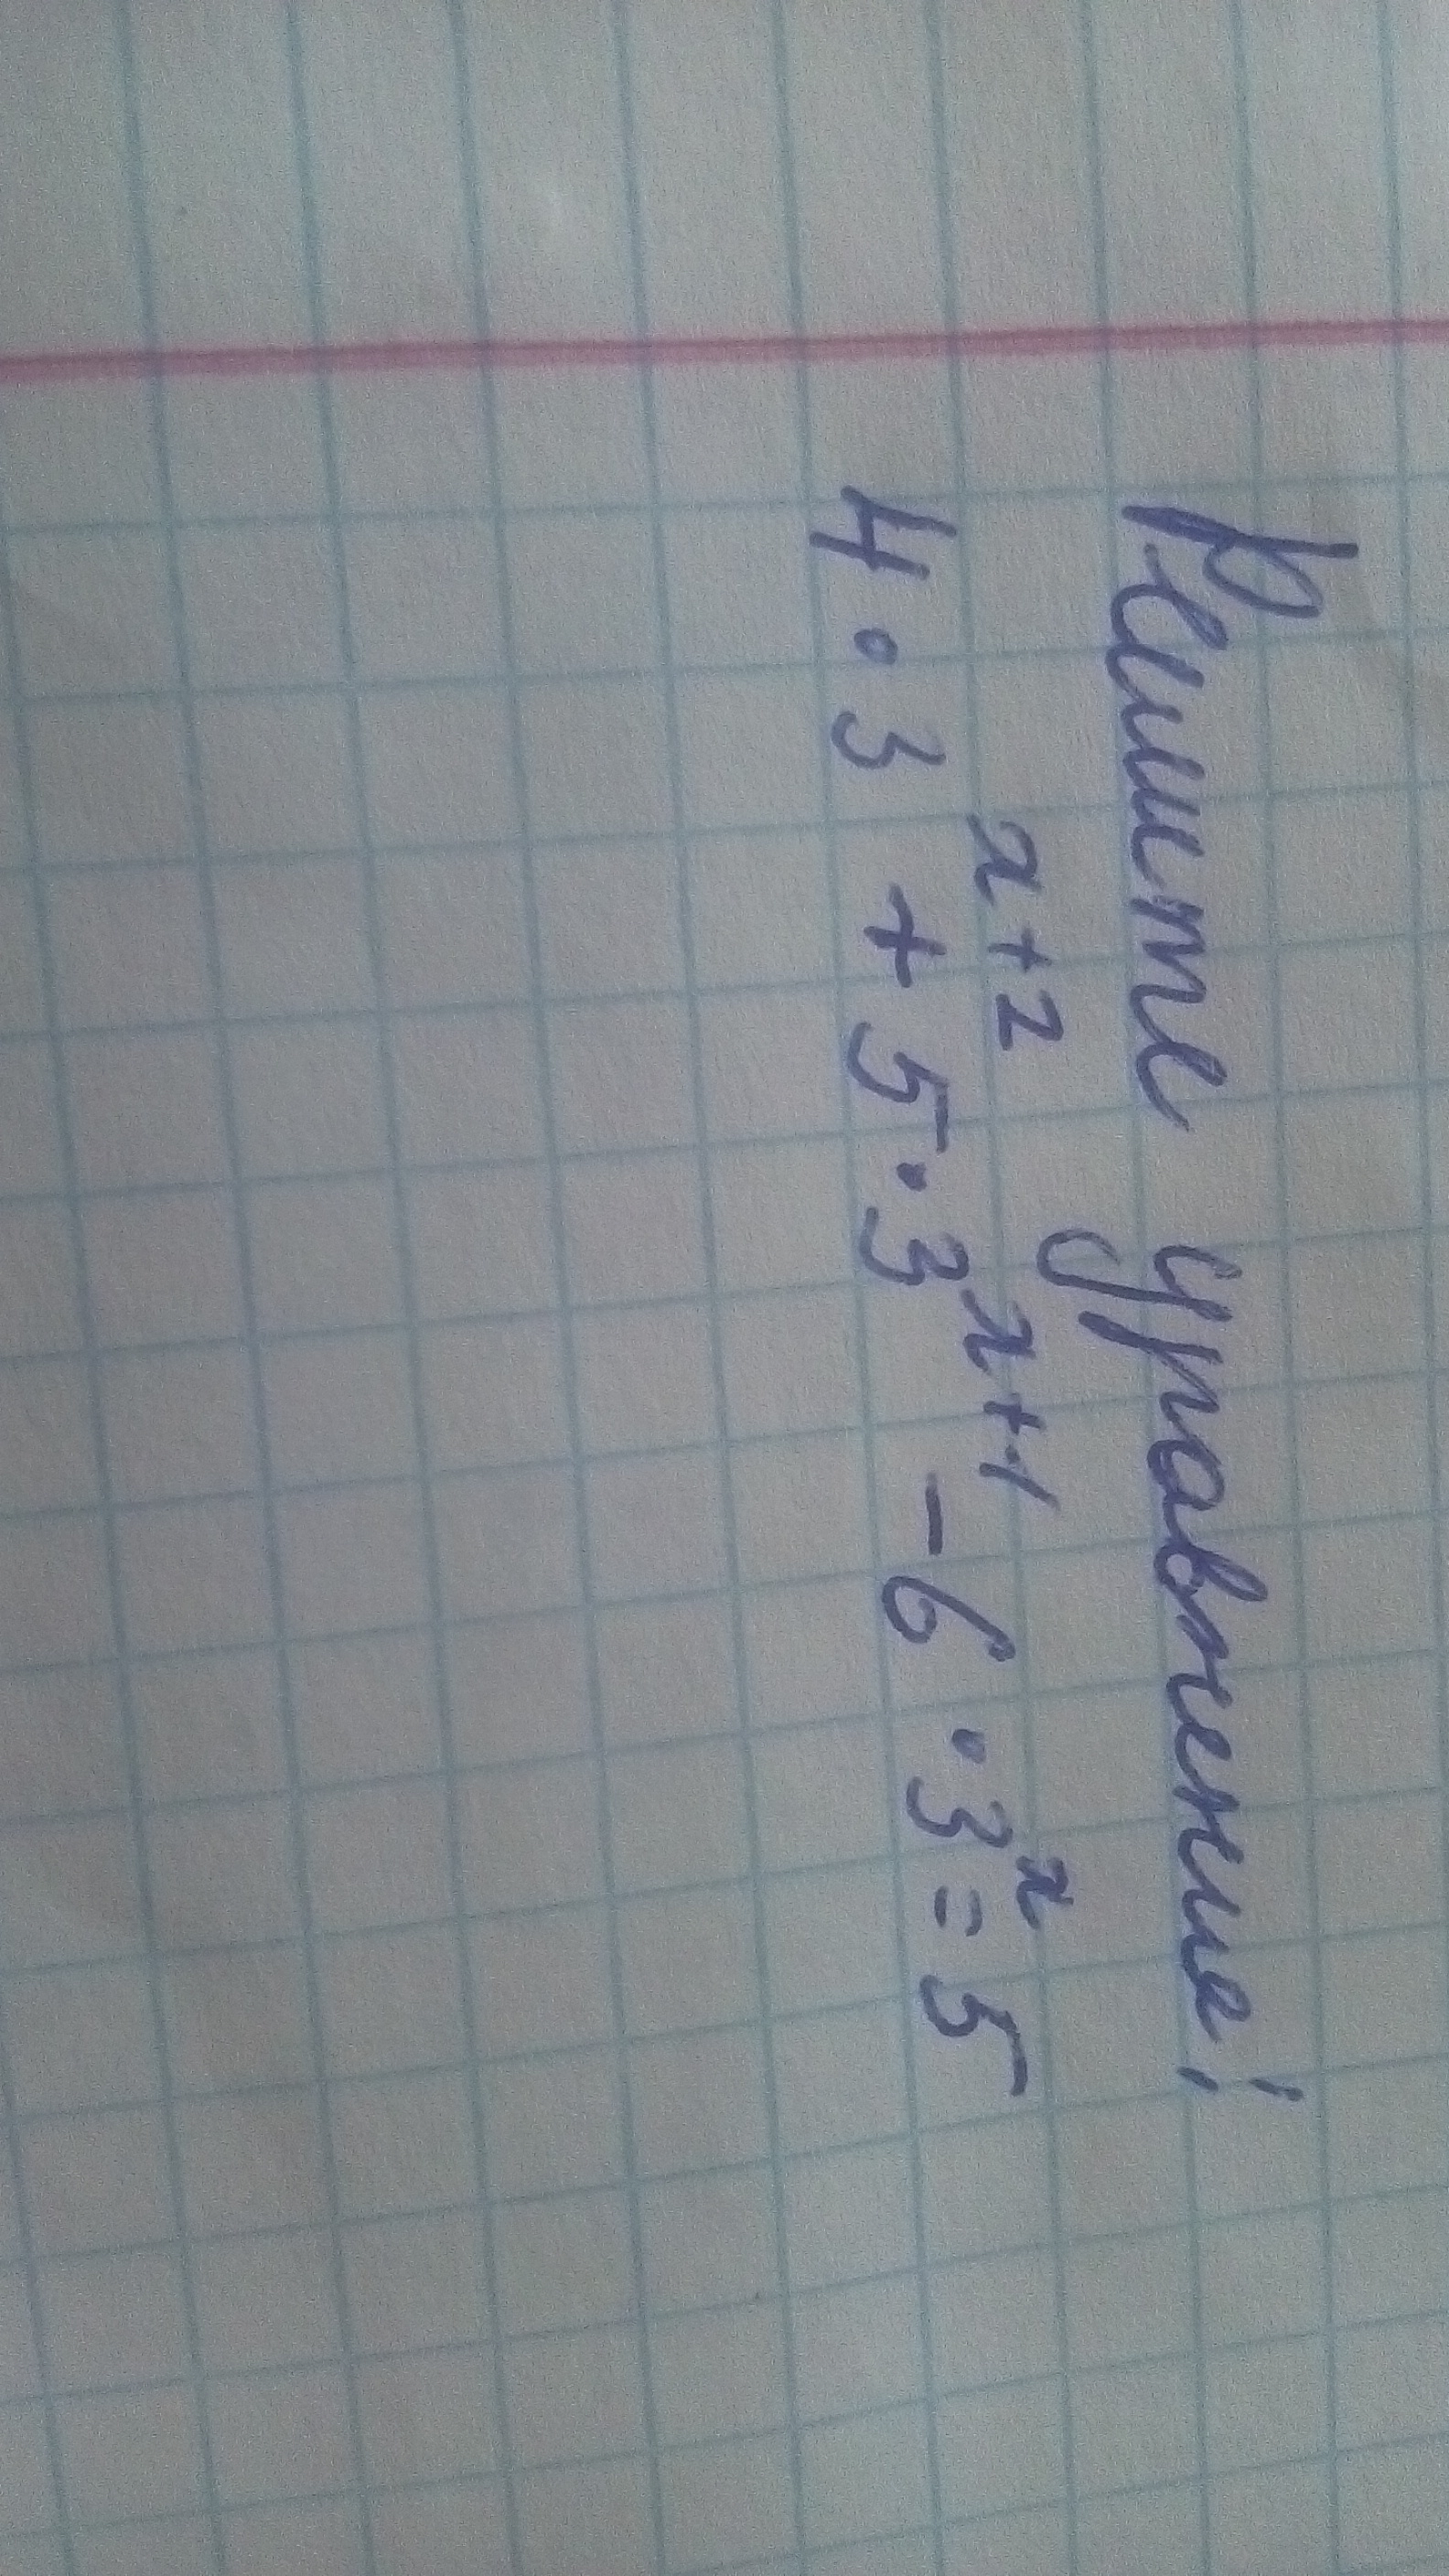 Решите уравнение:
4 · 3^{x+2} + 5 · 3^{x+1} - 6 · 3^x = 5